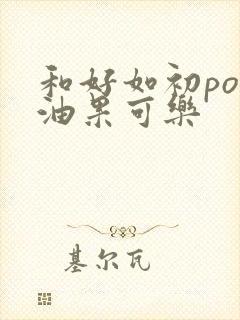 和好如初po
油果可樂
基尔瓦